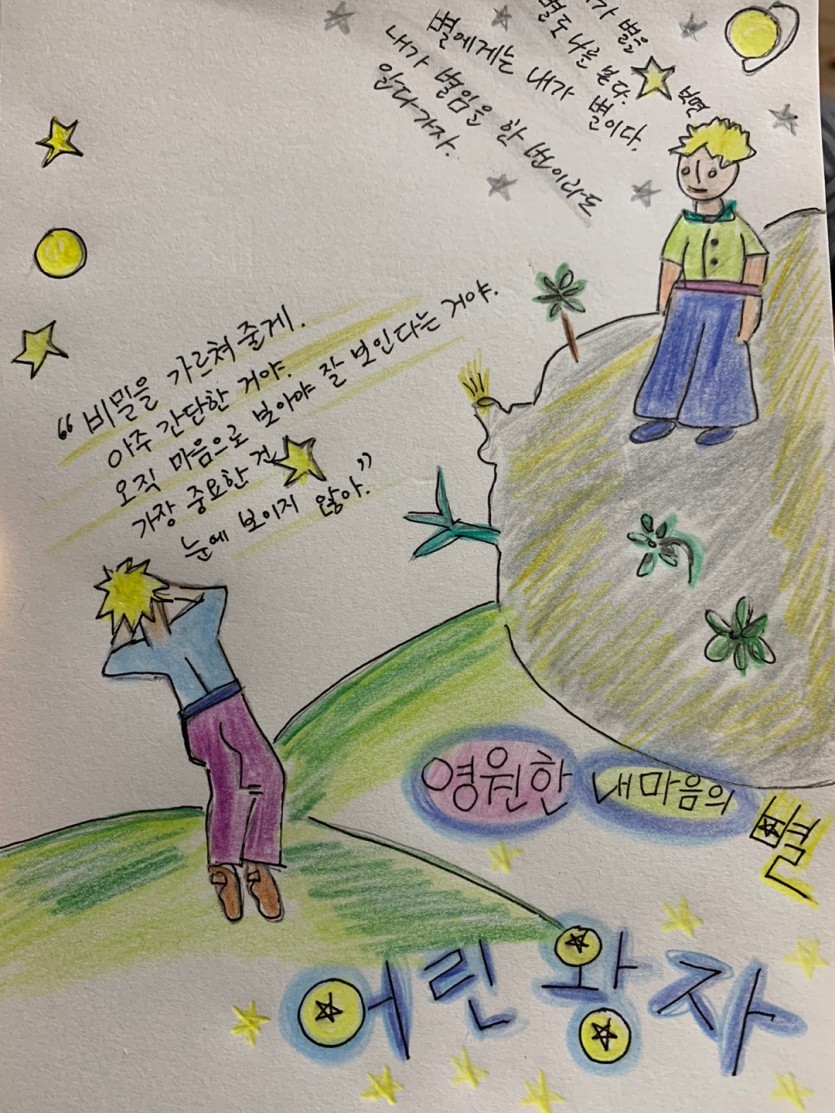 별도 나를 본다.
별에게는 내가 별이다.
내가 별임을 한 번이라도
알다가자.
“비밀을 가르쳐 줄게.
아주 간단한 거야.
오직 마음으로 보아야 잘 보인다는 거야.
가장 중요한 건
눈에 보이지 않아.”
영원한 내마음의 별
어린왕자